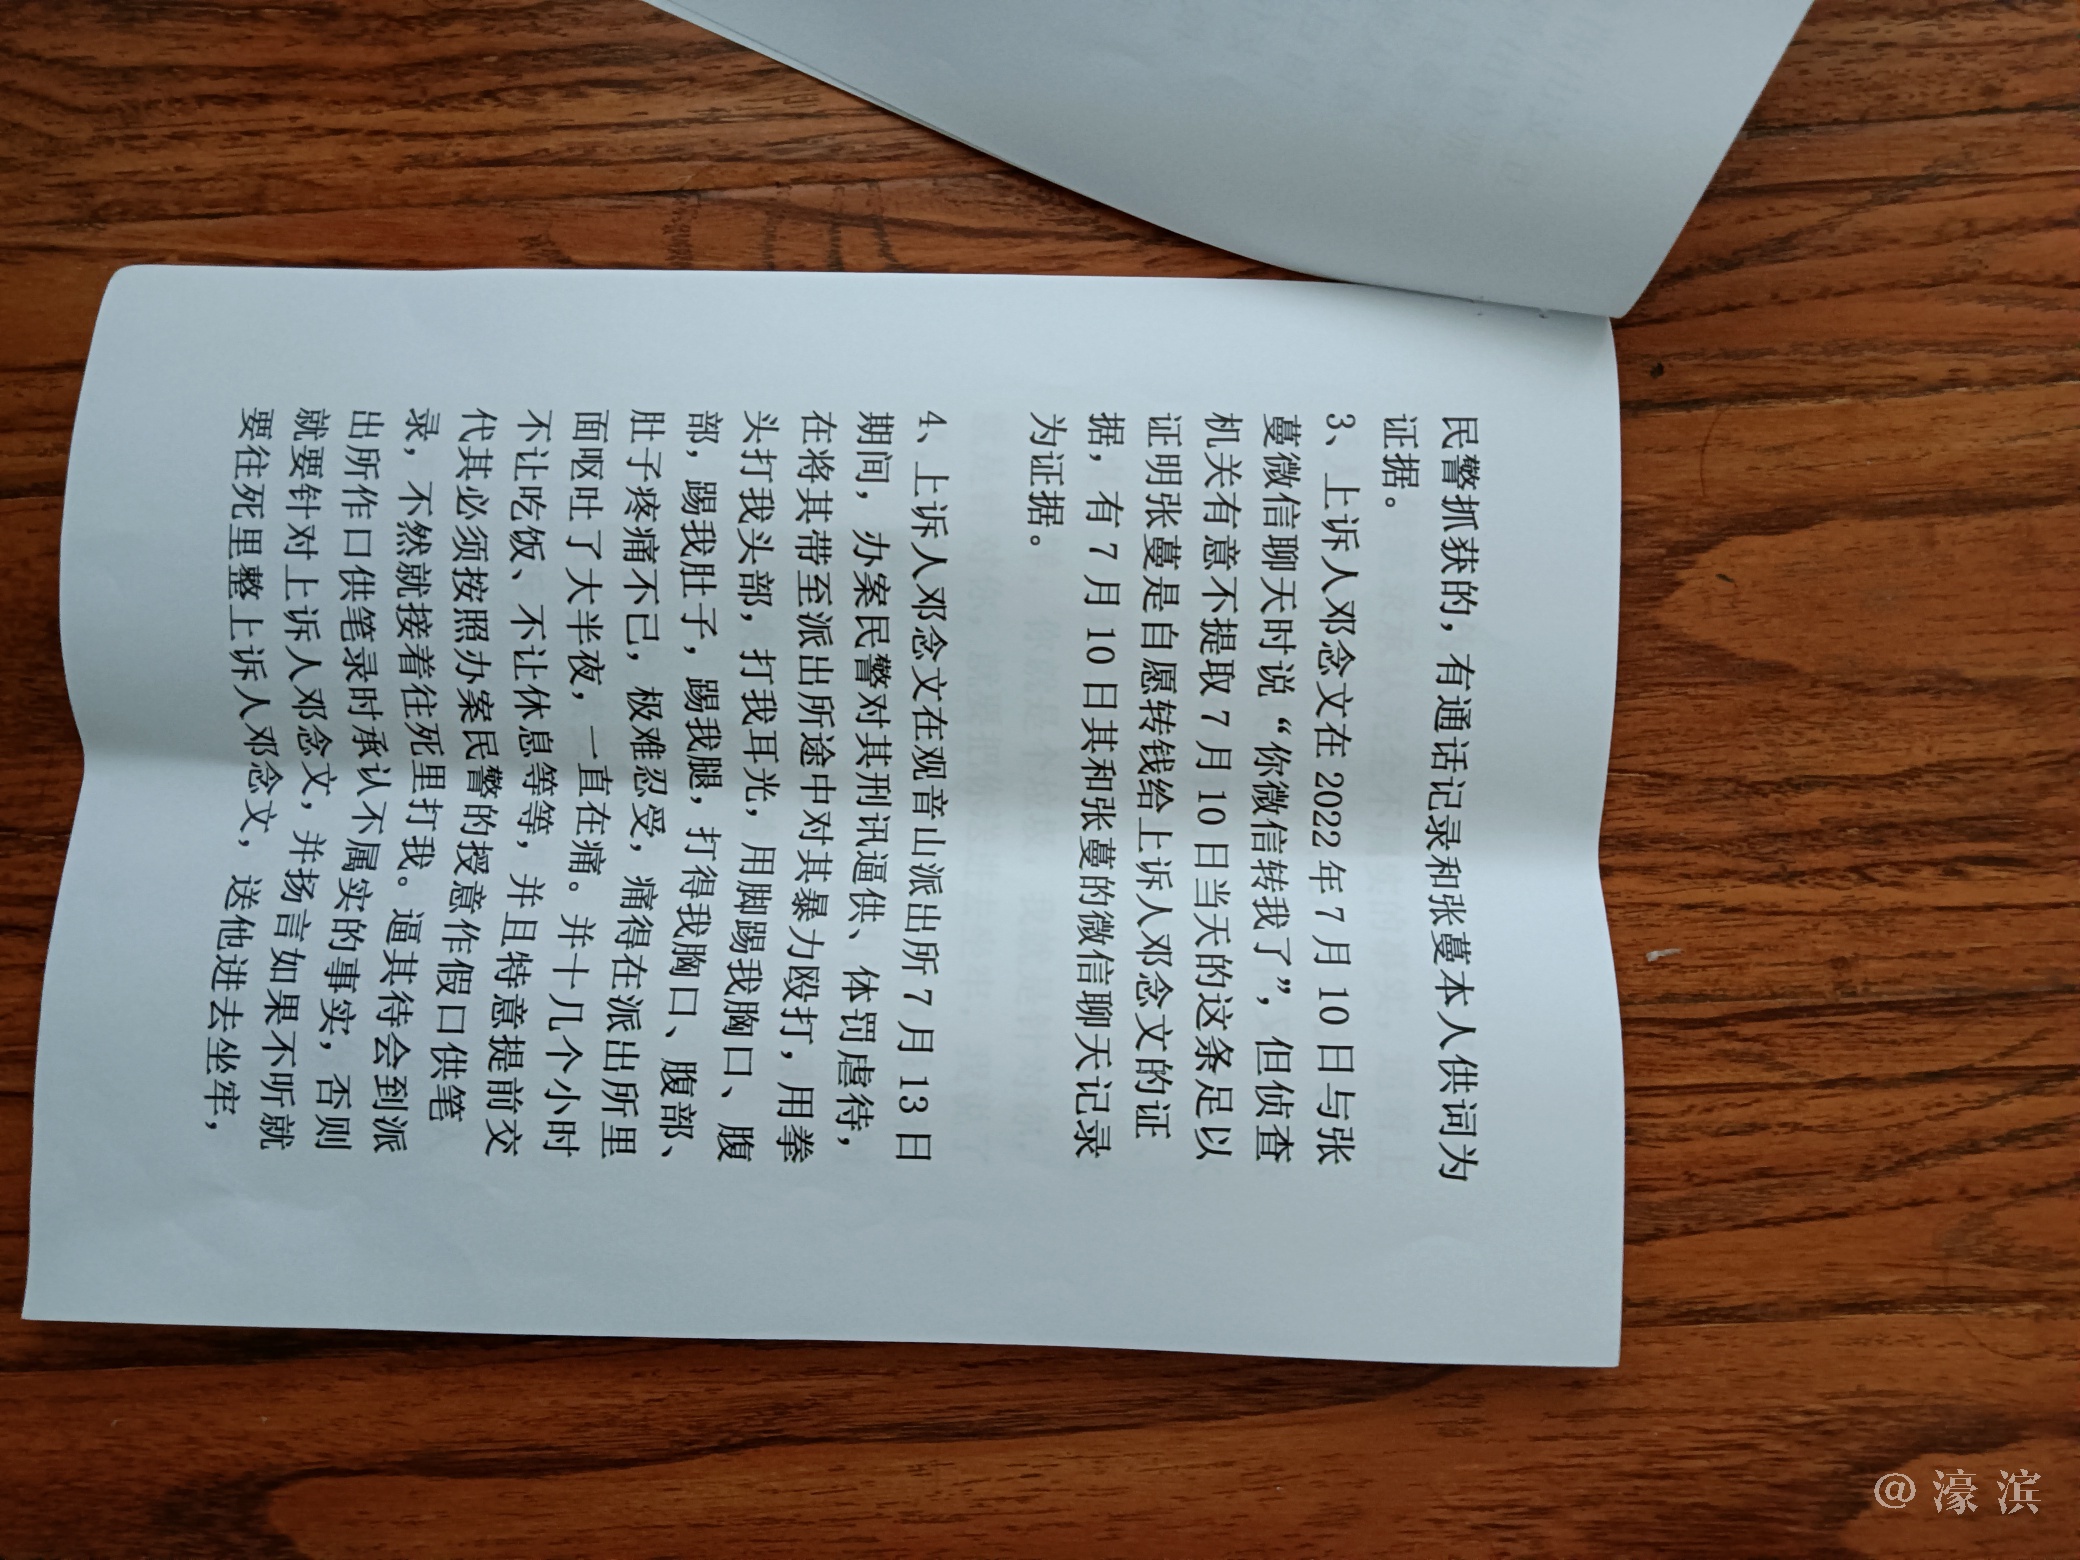 民警抓获的，有通话记录和张蔓本人供词为
证据。
3、上诉人邓念文在 2022 年 7 月 10 日与张
蔓微信聊天时说“你微信转我了”，但侦查
机关有意不提取 7 月 10 日当天的这条足以
证明张蔓是自愿转钱给上诉人邓念文的证
据，有 7 月 10 日其和张蔓的微信聊天记录
为证据。
4、上诉人邓念文在观音山派出所 7 月 13 日
期间，办案民警对其刑讯逼供、体罚虐待，
在将其带至派出所途中对其暴力殴打，用拳
头打我头部，打我耳光，用脚踢我胸口、腹
部，踢我肚子，踢我腿，打得我胸口、腹部、
肚子疼痛不已，极难忍受，痛得在派出所里
面呕吐了大半夜，一直在痛。并十几个小时
不让吃饭、不让休息等等，并且特意提前交
代其必须按照办案民警的授意作假口供笔
录，不然就接着往死里打我。逼其待会到派
出所作口供笔录时承认不属实的事实，否则
就要针对上诉人邓念文，并扬言如果不听就
要往死里整上诉人邓念文，送他进去坐牢，
@濠滨